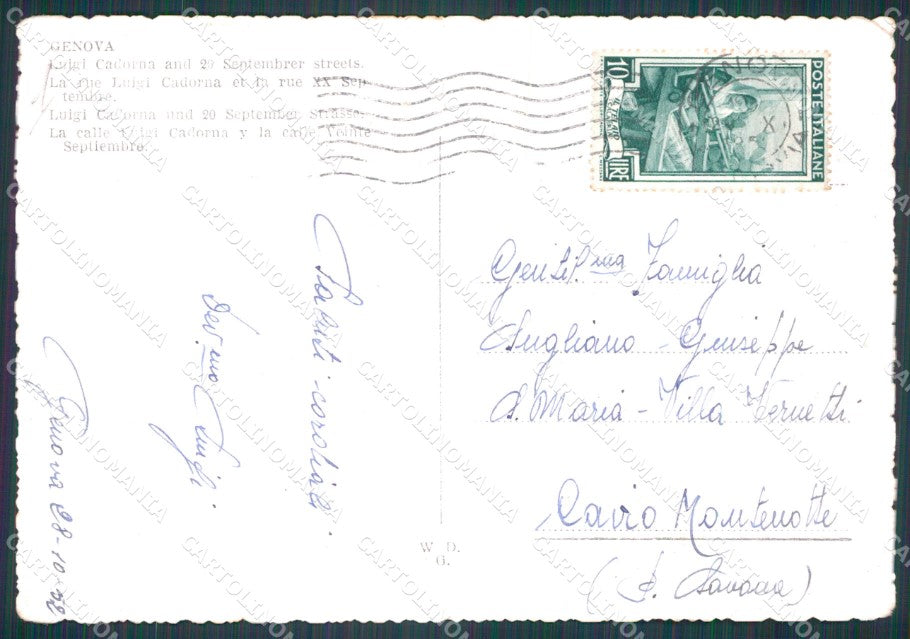 GENOVA
Luigi Cadorna and 20 Septembrer streets.
La rue Luigi Cadorna et la rue XX Sep-
tembre.
Luigi Cadorna und 20 September Strasse.
La calle Luigi Cadorna y la calle Veinte
Septiembre.
10
LIRE
POSTE ITALIANE
Saluti cordiali
Dev.mo Luigi.
Genova 28-10-52
Gentil.ma Famiglia
Giuseppe
S. Maria - Villa
Cairo Montenotte
(P. Savona)
W. D.
G.
CARTOLINOMANIA